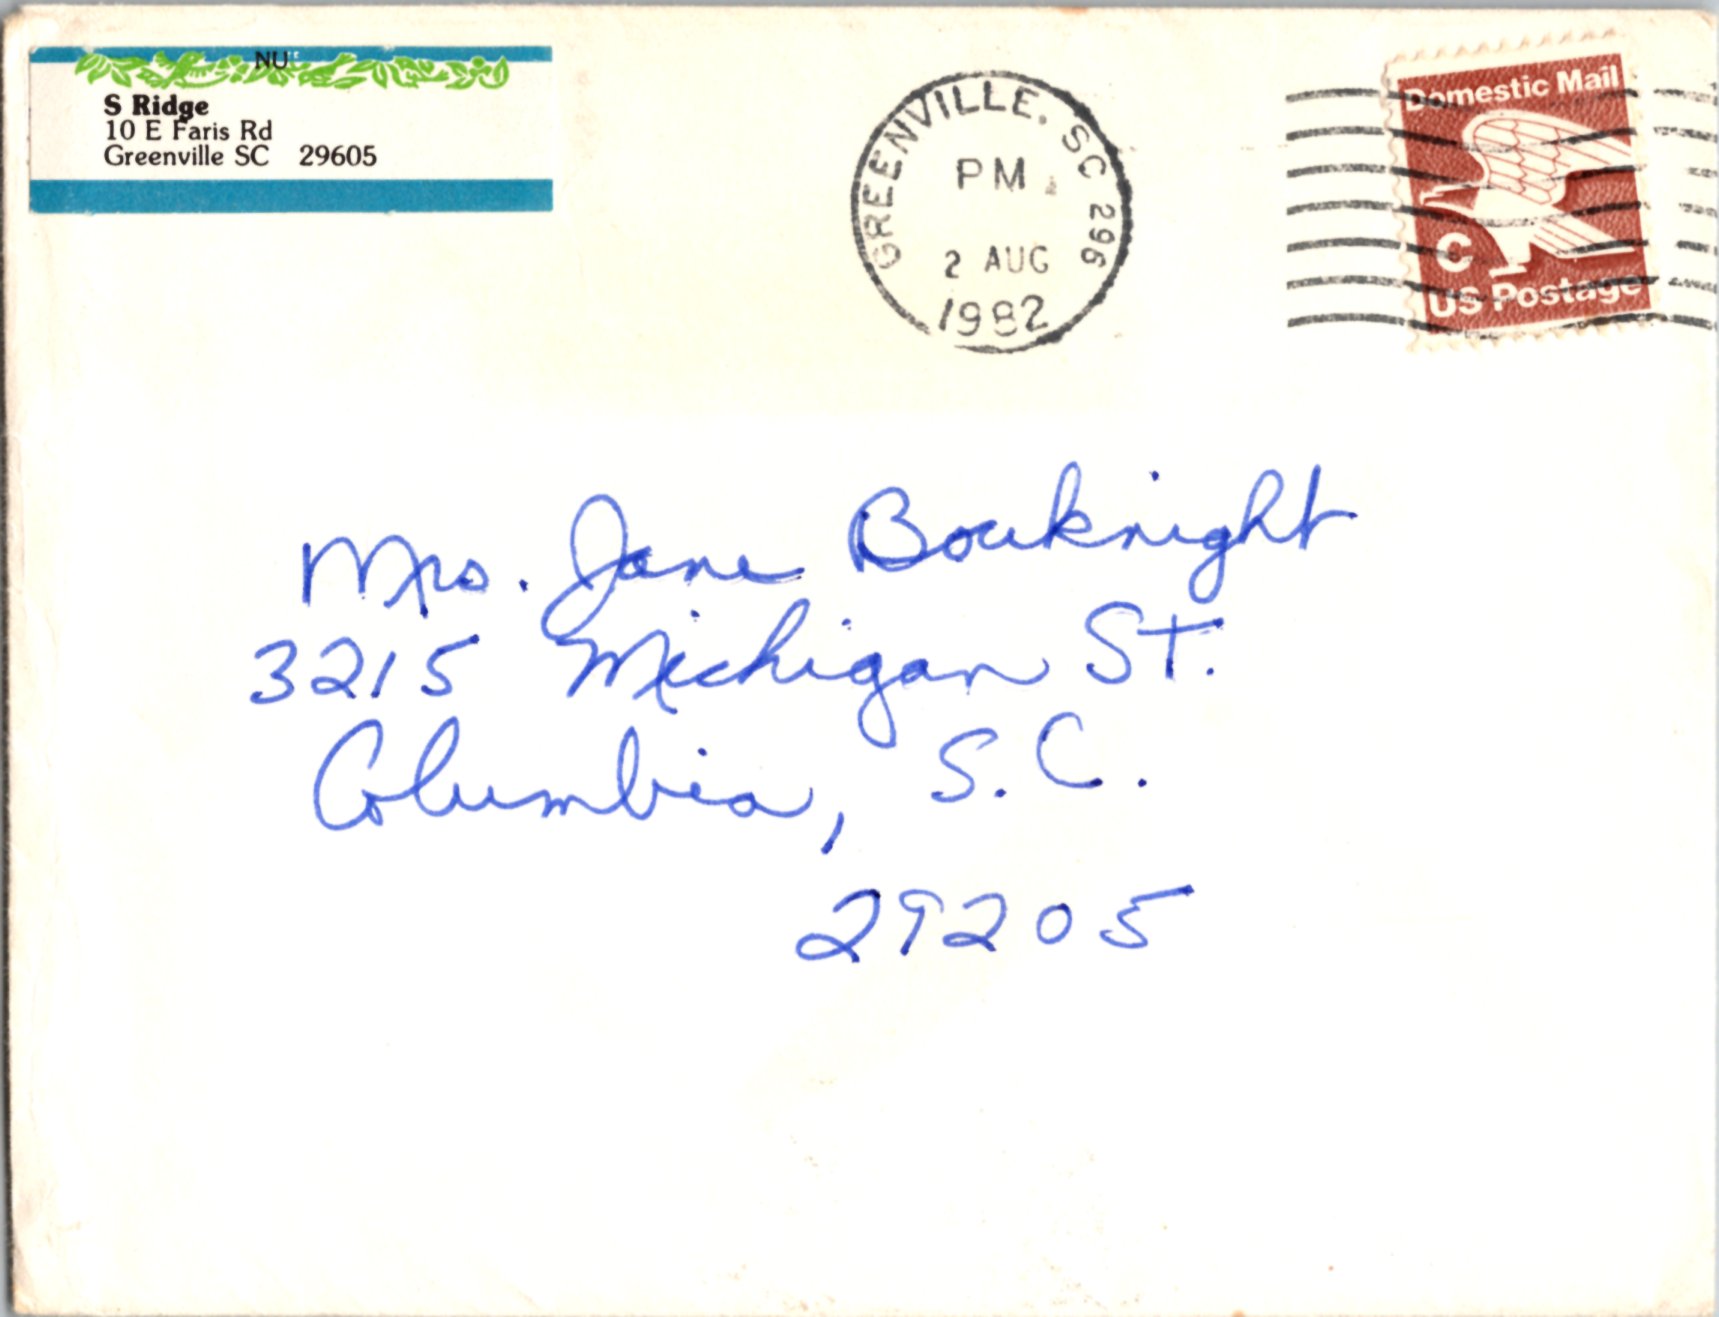 NU
S Ridge
10 E Faris Rd
Greenville SC 29605
GREENVILLE, SC 296
PM
2 AUG
1982
Domestic Mail
C
US Postage
Mrs. Jane Bouknight
3215 Michigan St.
Columbia, S.C.
29205